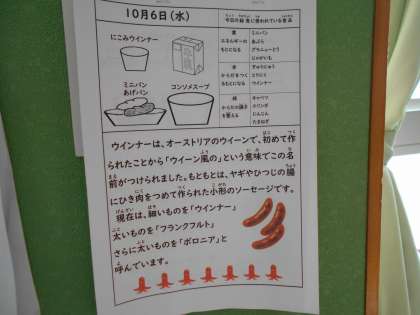 10月6日(水)
今日の給食に使われている食品
にこみウインナー
ミニパン
あげパン
コンソメスープ
黄
エネルギーの
もとになる
ミニパン
あぶら
グラニューとう
じゃがいも
赤
からだをつく
るもとになる
ぎゅうにゅう
とりにく
ウインナー
緑
からだの調子
を整える
キャベツ
にんじん
たまねぎ
ウインナーは、オーストリアのウイーンで、初めて作
られたことから「ウイーン風の」という意味でこの名
前がつけられました。もともとは、ヤギやひつじの腸
にひき肉をつめて作られた小形のソーセージです。
現在は、細いものを「ウインナー」
太いものを「フランクフルト」
さらに太いものを「ボロニア」と
呼んでいます。